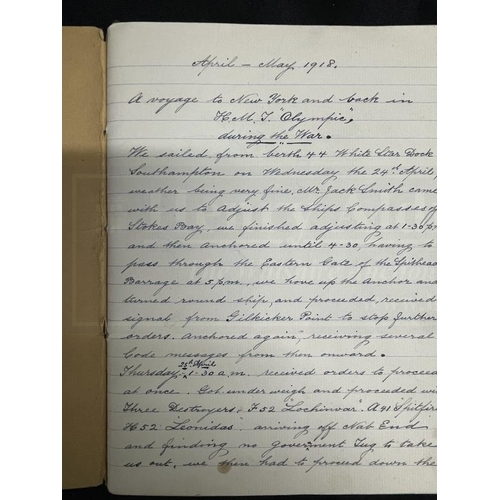 April – May 1918.
A voyage to New York and back in
H.M.T. "Olympic",
during the War.
We sailed from berth 44 White Star Dock
Southampton on Wednesday the 24th April,
weather being very fine, Mr Jack Smith came
with us to adjust the ships Compasses off
Stokes Bay, we finished adjusting at 1-30 p.m
and then anchored until 4-30, having to
pass through the Eastern Gate of the Spithead
Barrage at 5 p.m, we hove up the Anchor and
turned round ship, and proceeded, received
signal from Gilkicker Point to stop further
orders. Anchored again, receiving several
Code messages from then onward.
25th April
Thursday 1-30 a.m. received orders to proceed
at once. Got under weigh and proceeded with
Three Destroyers, F52 "Lochinvar" A91 "Spitfire
H52 "Leonidas" arriving off Nab End
and finding no Government Tug to take
us out, we then had to proceed down the